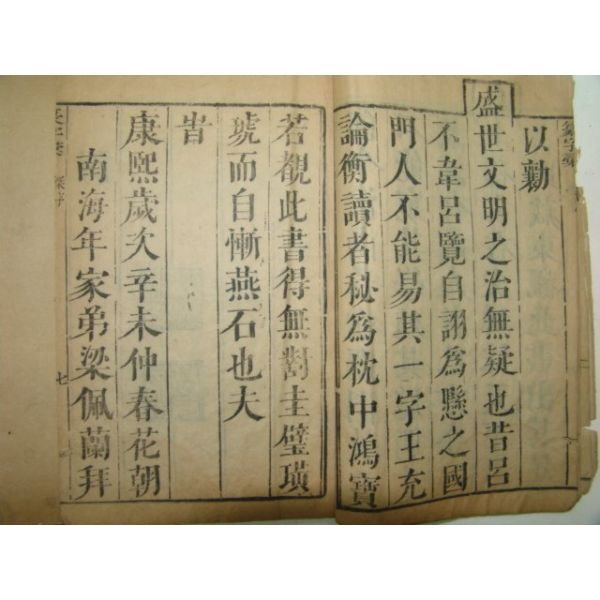 以勷
盛世文明之治無疑也昔呂
不韋呂覽自詡爲懸之國
門人不能易其一字王充
論衡讀者秘爲枕中鴻寶
若覩此書得無對圭璧璜
琥而自慚燕石也夫
旹
康熙歲次辛未仲春花朝
南海年家弟梁佩蘭拜
七